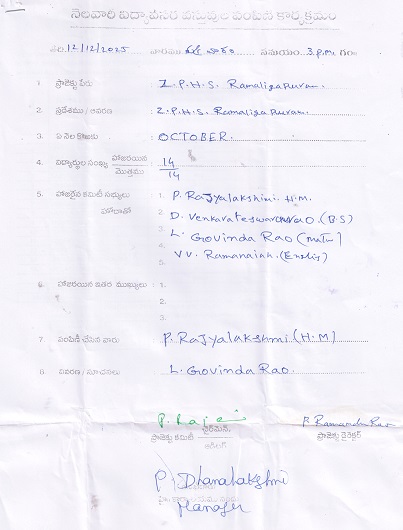 నెలవారి విద్యావసర వస్తువుల పంపిణీ కార్యక్రమం
తేది.12/12/2025 వారము సమయం. 3.p.m. గం
1. ప్రాజెక్టు పేరు : Z.P.H.S. Ramaligapuram.
2. ప్రదేశము / వివరణ : Z.P.H.S. Ramaligapuram.
3. ఏ నెల కొరకు : OCTOBER.
4. విద్యార్థుల సంఖ్య హాజరయిన / మొత్తము : 14 / 14
5. హాజరైన కమిటీ సభ్యులు : 1. P. Rajyalakshmi. H.M.
హోదాతో 2. D. Venkarateswararao. (B.S)
3. L. Govinda Rao (Maths)
4. V.V. Ramanaiah. (English)
5.
6. హాజరయిన ఇతర ముఖ్యులు : 1.
2.
3.
7. పంపిణీ చేసిన వారు : P. Rajyalakshmi (H.M)
8. వివరణ / సూచనలు : L. Govinda Rao.
P. Raje
P. Ramanda Rao
ఛైర్మెన్,
ప్రాజెక్టు కమిటీ ప్రాజెక్టు డైరెక్టర్
P. Dhanalakshmi
Manager